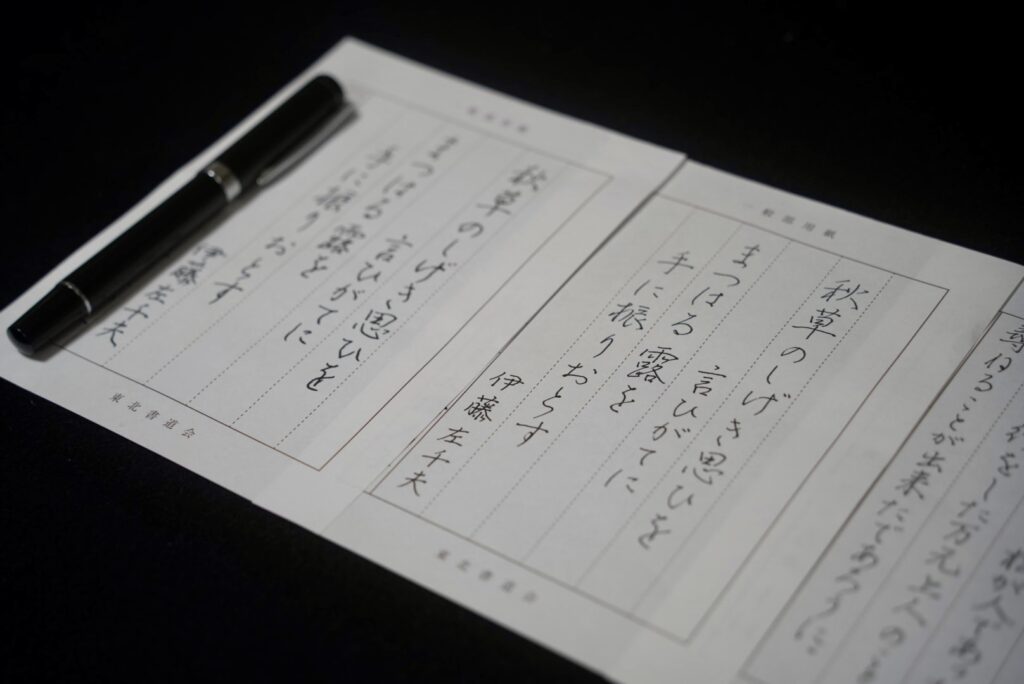 尋ねることが出来たであろうに
一般部用紙
秋草のしげき思ひを
言ひがてに
まつはる露を
手に振りおとす
伊藤左千夫
東北書道会
秋草のしげき思ひを
言ひがてに
まつはる露を
手に振りおとす
伊藤左千夫
東北書道会